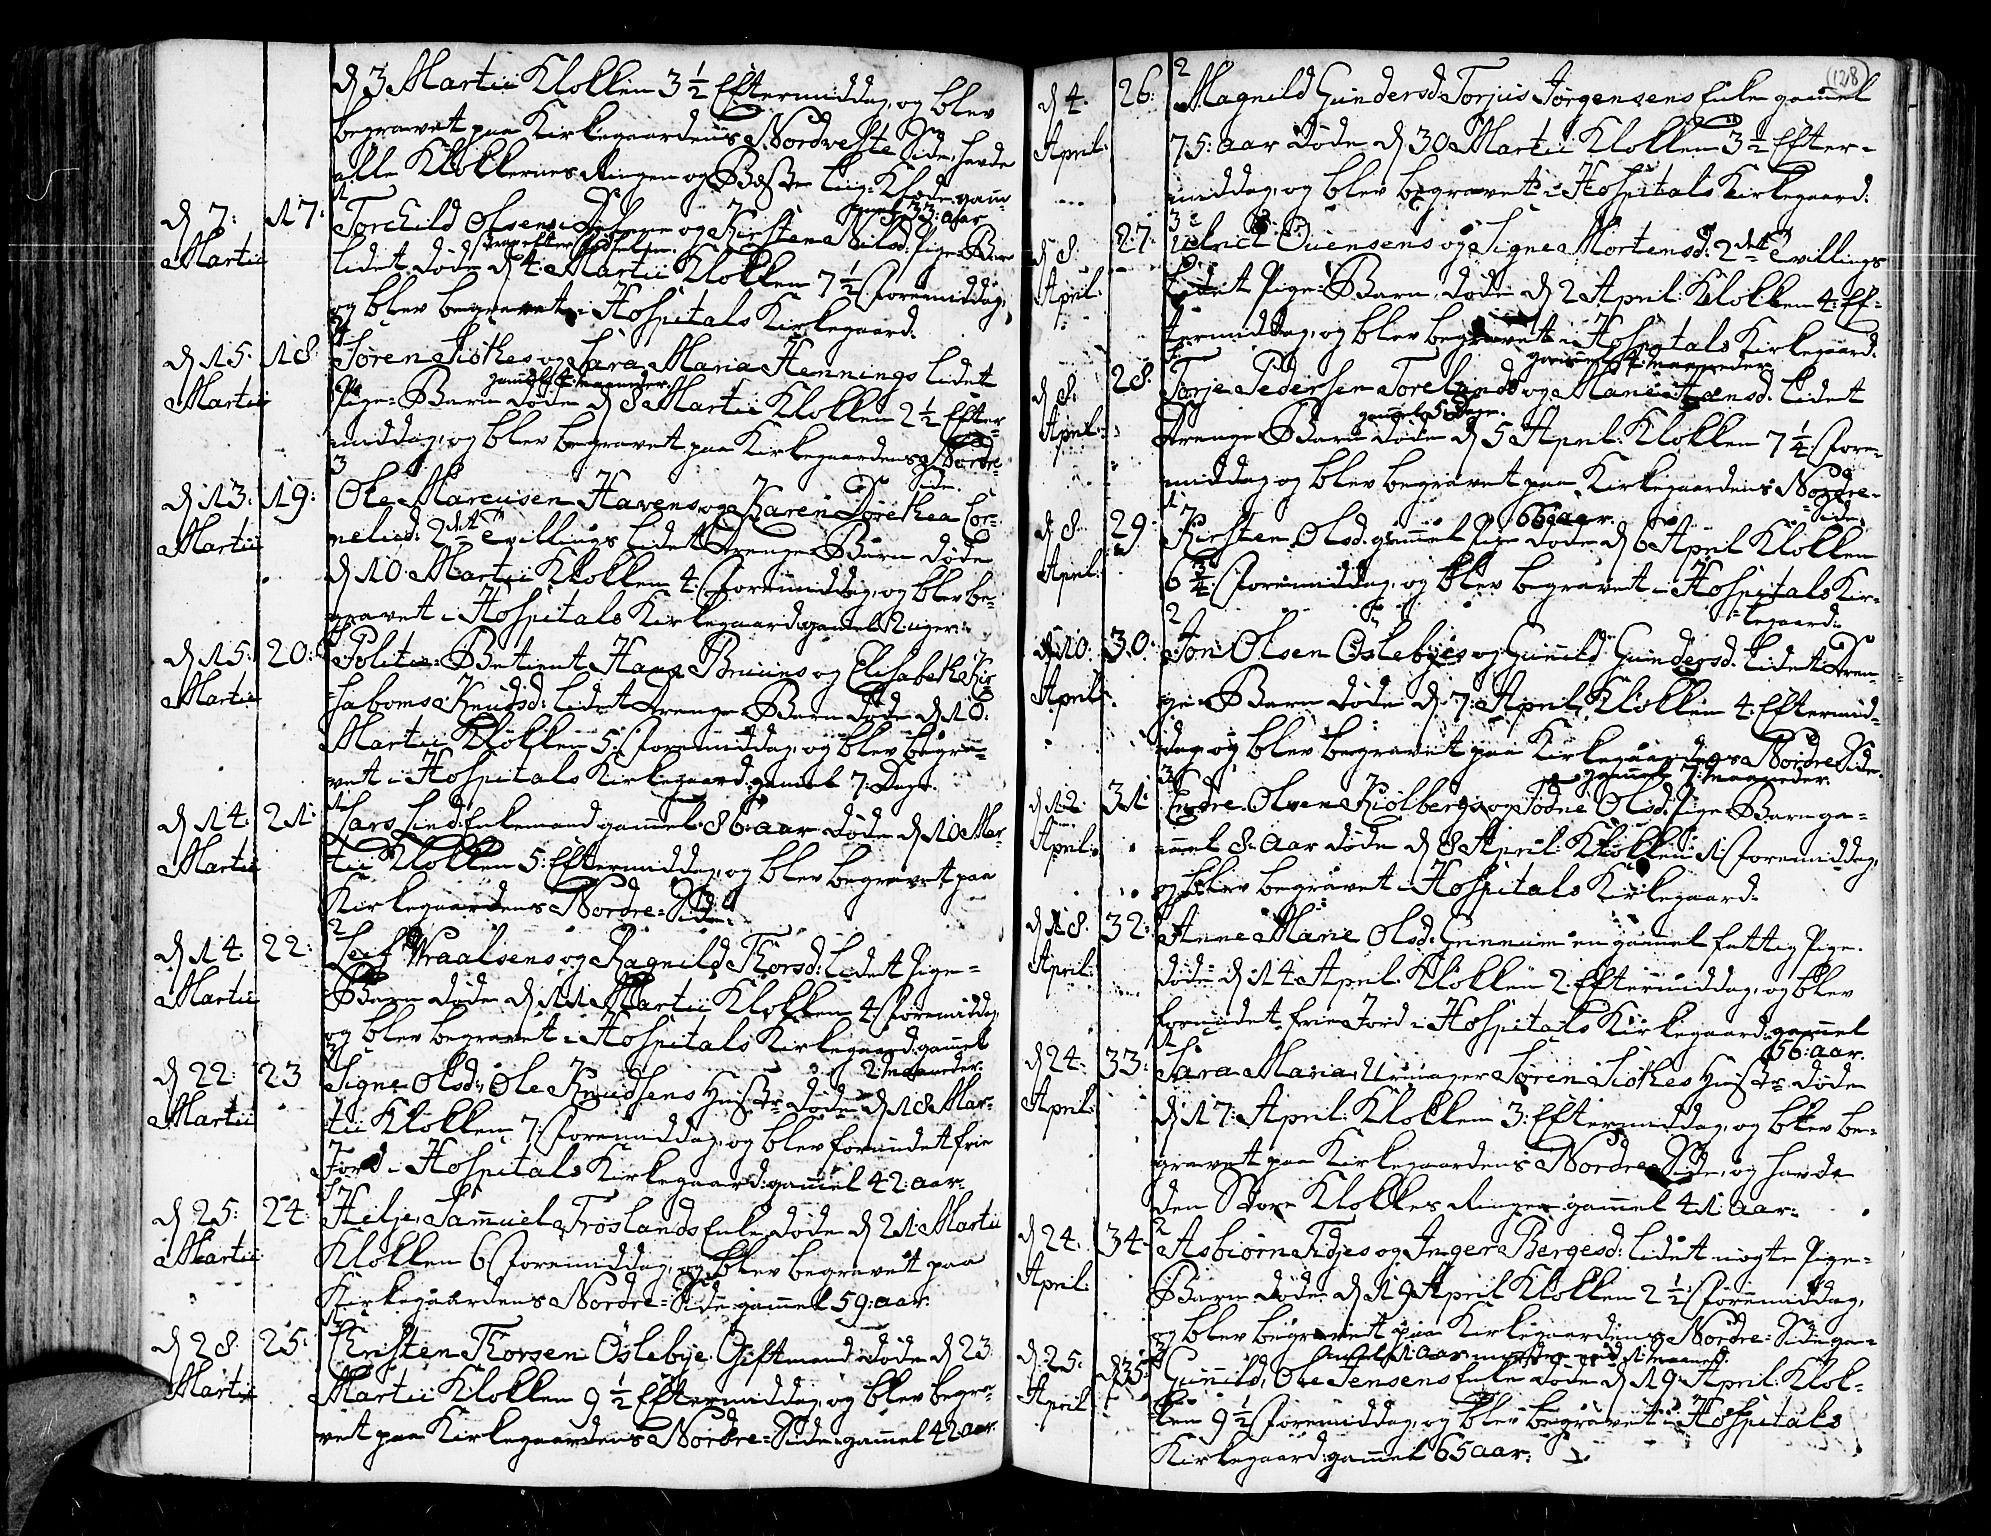 d 3 Martii Klokken 3 1/2 Eftermiddag, og blev
begravet paa Kirkegaardens Nordveste Side, havde
alle Klokkernes Ringen og Beste Liig-Klæde gam-
mel 33: aar
d 7: Martii 17: Torchild Olsens og Kirsten Nilsd: Pige-Barn
lidet, døde d 4: Martii Klokken 7 1/2 Formiddag,
og blev begravet i Hospitals Kirkegaard.
d 15: Martii 18: Søren Siøkes og Sara Maria Hennings lidet
gammel 4 Maaneder
Pige-Barn døde d 8 Martii Klokken 2 1/2 Efter-
middag, og blev begravet paa Kirkegaardens Nordre-
Side.
3
d 13: Martii 19: Ole Marcusen Havens og Karen Dorethea Cor-
nelied: 2det Tvillings lidet Drenge-Barn døde
d 10 Martii Klokken 4: Formiddag, og blev be-
gravet i Hospitals Kirkegaard: gamel 2 uger.
d 15: Martii 20: Politie-Betient Hans Bruuns og Elisabeth
Knudsd: lidet Drenge-Barn døde d 10:
Martii Klokken 5: Formiddag, og blev begra-
vet i Hospitals Kirkegaard: gamel 7: Dage.
d 14: Martii 21: Lars Lind: Enkemand gamel: 86: aar døde d 10 Mar-
tii Klokken 5: Eftermiddag, og blev begravet paa
Kirkegaardens Nordre-Side.
2
d 14: Martii 22: Leif Wraalsens og Ragnild Thorsd: Lidet Pige-
Barn døde d 11 Martii Klokken 4: Formiddag,
og blev begravet i Hospitals Kirkegaard: gammel
2: Maaneder.
d 22: Martii 23 Signe Olsd: Ole Knudsens Hustr: døde d 18 Mar-
tii Klokken 7: Formiddag, og blev forundet frie
Jord i Hospitals Kirkegaard: gammel 42: aar.
d 25: Martii 24: Helje, Samuel Trøslands Enke døde d 21 Martii
Klokken 6 Formiddag, og blev begravet paa
Kirkegaardens Nordre-Side gammel 59: aar.
d 28 Martii 25: Christen Thorsen Oslebye Giftmand døde d 23:
Martii Klokken 9 1/2 Eftermiddag, og blev begra-
vet paa Kirkegaardens Nordre-Side: gammel 42 aar.
(128)
2
d 4. April: 26: Magnild Gundersd: Torjus Jørgensens Enke gammel
75: aar døde d 30 Martii Klokken 3 1/2 Efter-
middag, og blev begravet i Hospitals Kirkegaard.
3
d 8. April: 27: Ulrich Ouensens og Signe Mortensd: 2det Tvillings
lidet Pige-Barn, døde d 2 April: Klokken 4: Ef-
termiddag, og blev begravet i Hospitals Kirkegaard.
gammel Maaneder
d 8. April: 28: Torje Pedersen Torelands og Marie Hansd: lidet
gammel 5 Dage.
Drenge-Barn døde d 5 April: Klokken 7 1/4: Fore-
middag og blev begravet paa Kirkegaardens Nordre-
Side.
66 aar.
d 8 April: 29: Kirsten Olsd: gammel Pige døde d 6 April Klokken
6 3/4 Formiddag, og blev begravet i Hospitals Kir-
kegaard:
2
d 10. April: 30: Jon Olsen Oslebyes og Gunnild Gundersd: lidet Dren-
ge-Barn døde d 7: April: Klokken 4: Eftermid-
dag og blev begravet paa Kirkegaardens Nordre Side.
gammel 7: Maaneder.
3
d 12. April: 31: Endre Olsen Kiølbergs og Jødne Olsd: Pige-Barn ga-
mmel 8. aar døde d 8 April: Klokken 1 Formiddag,
og blev begravet i Hospitals Kirkegaard.
d 18. April: 32: Anne Marie Olsd: Grimum en gammel fattig Pige
døde d 14 April: Klokken 2: Eftermiddag, og blev
forundet frie Jord i Hospitals Kirkegaard: gammel
56: aar.
d 24: April: 33: Sara Maria, Urmager Søren Siøkes Hustr: døde
d 17: April: Klokken 3: Eftermiddag, og blev be-
gravet paa Kirkegaardens Nordre Side, og havde
den Store Klokkes Ringen gammel 41: aar.
2
d 24. April: 34: Asbiørn Tidjes og Inger Bergesd: lidet uægte Pige-
Barn døde d 19 April Klokken 2 1/2: Formiddag,
og blev begravet paa Kirkegaardens Nordre-Side ga-
3
d 25. April 35: Gunnild, Ole Jensens Enke døde d 19: April: Klok-
ken 9 1/2 Formiddag, og blev begravet i Hospitals
Kirkegaard: gammel 65 aar: